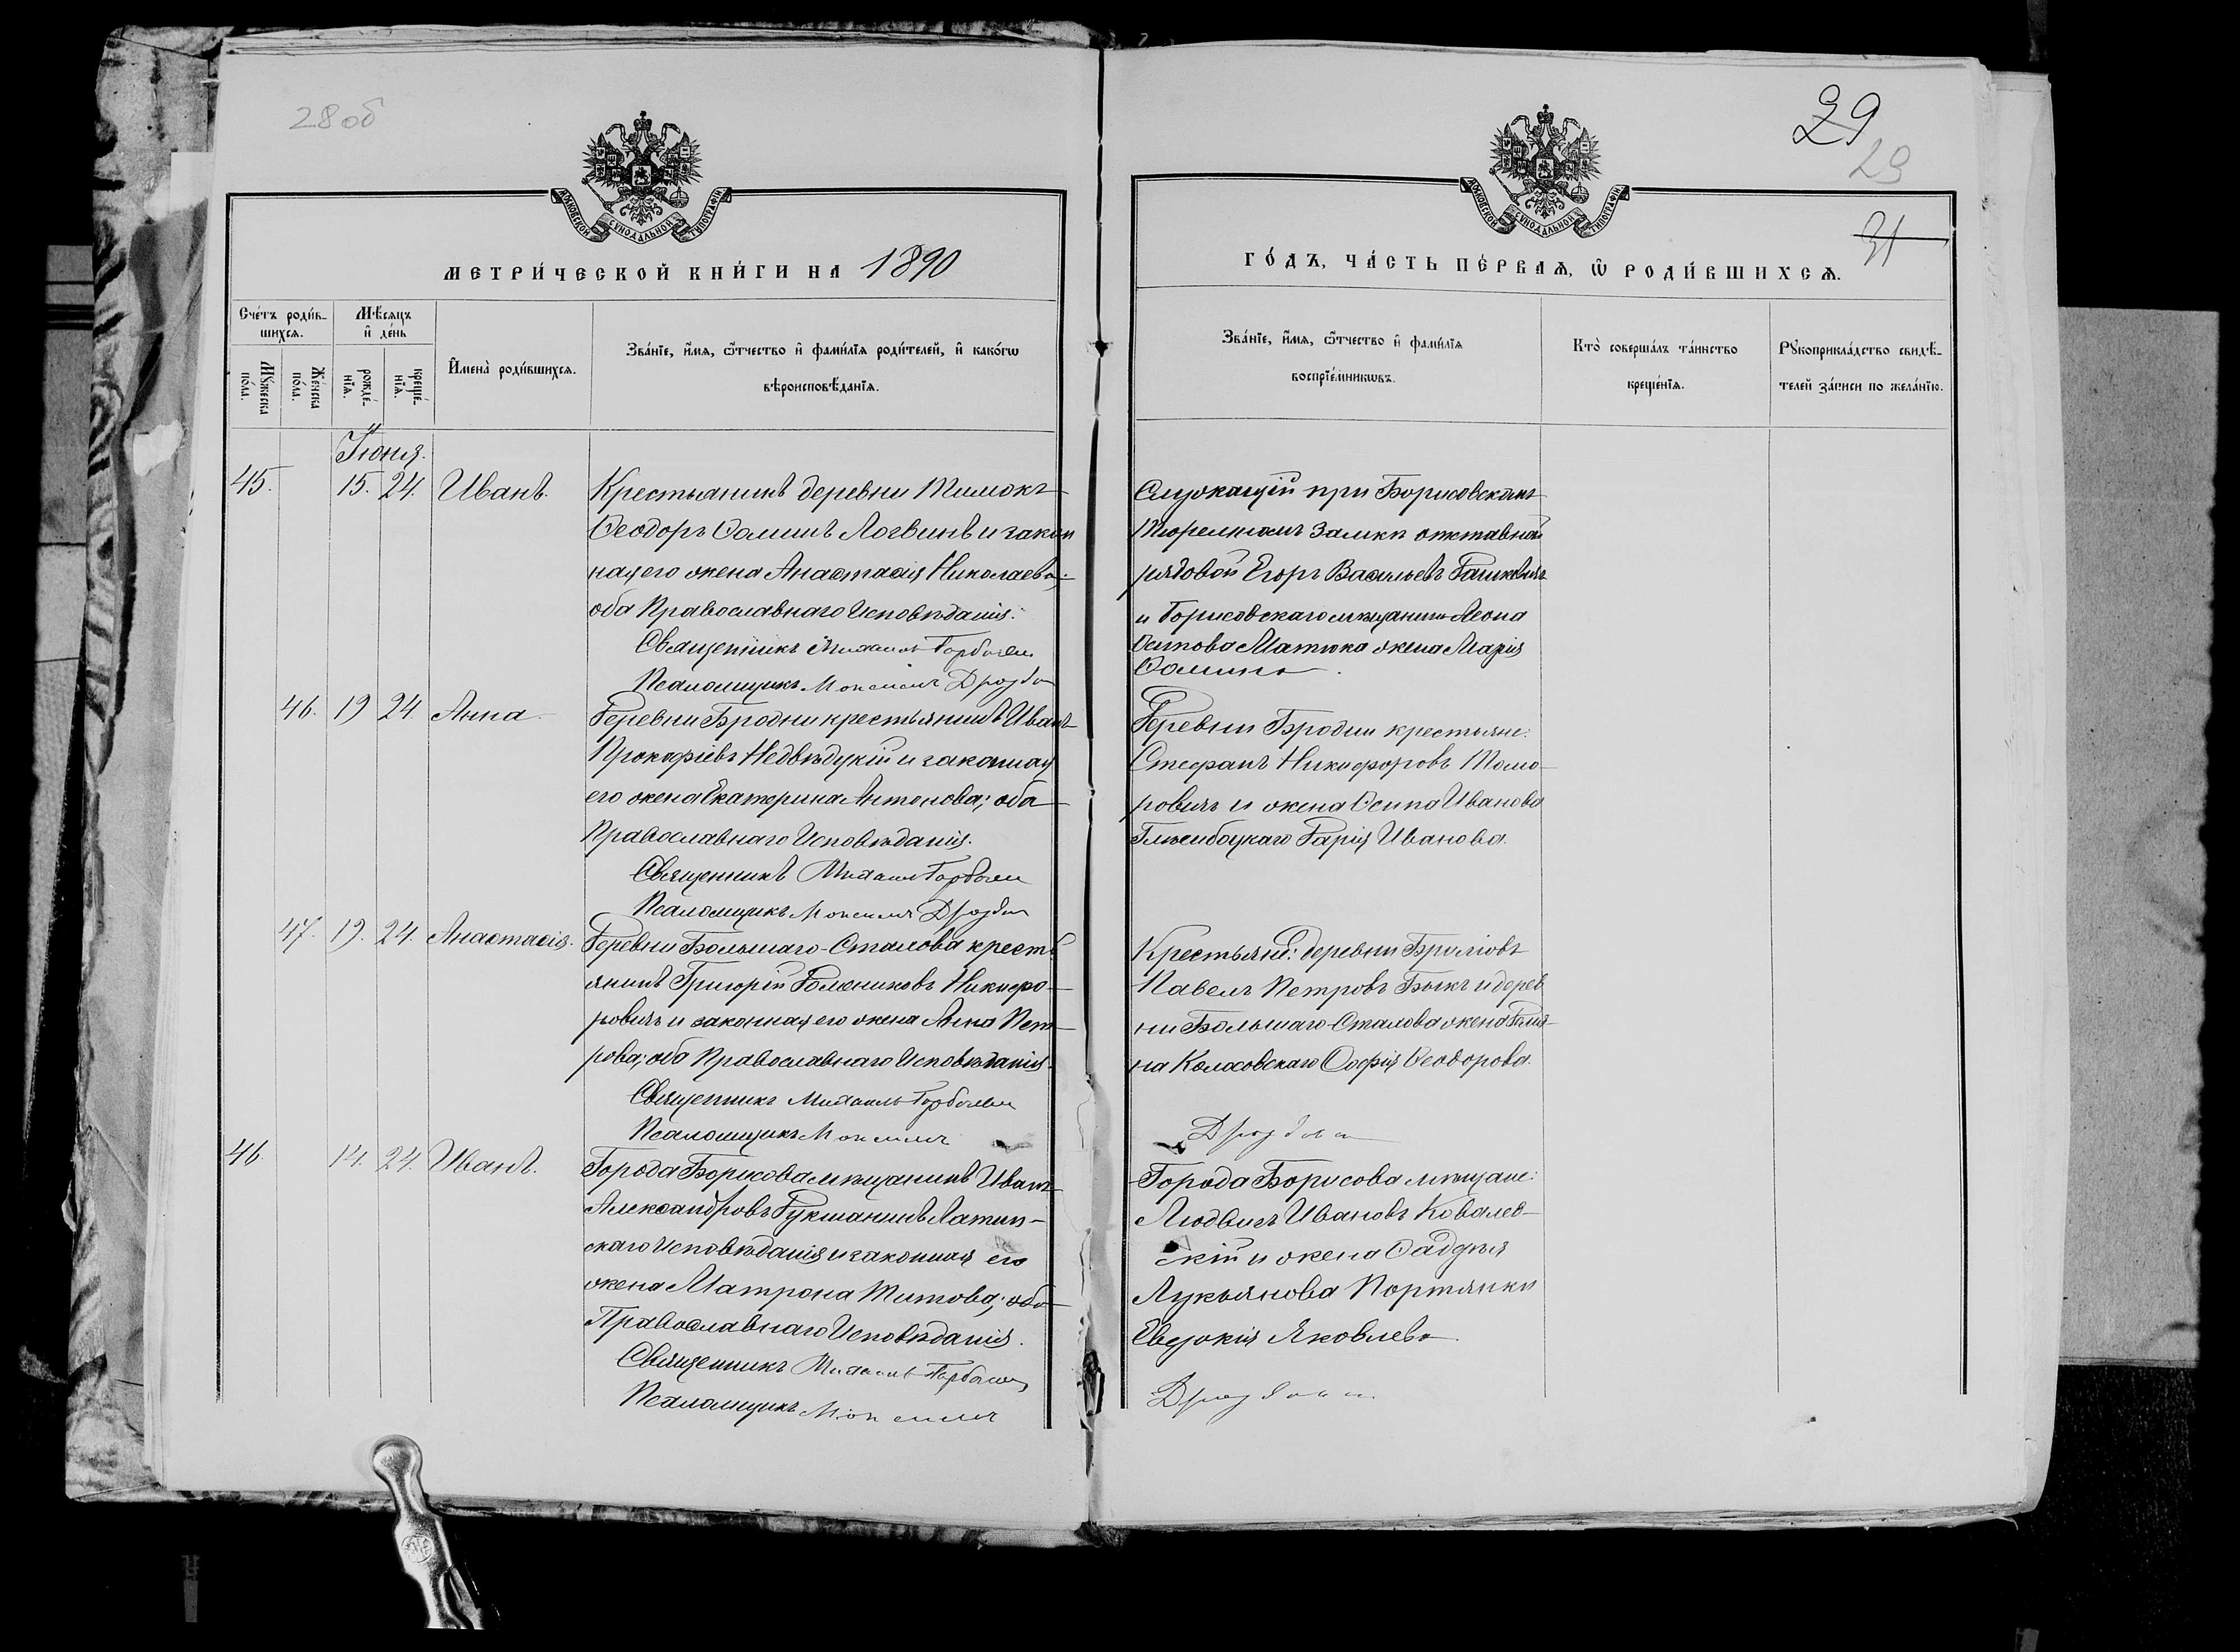 28 об
29
29
31
МОСКОВСКОЙ СѴНОДАЛЬНОЙ ТИПОГРАФІИ
МОСКОВСКОЙ СѴНОДАЛЬНОЙ ТИПОГРАФІИ
МЕТРИ́ЧЕСКОЙ КНИ́ГИ НА 1890
ГО́ДЪ, ЧА́СТЬ ПЕ́РВАѦ, Ѡ҆ РОДИ́ВШИХСѦ.
Сче́тъ роди́в-
шихсѧ.
Мꙋ́жеска по́ла.
Же́нска по́ла.
Мѣ́сѧцъ
и҆ де́нь
рожде́-
нїѧ.
креще́-
нїѧ.
И҆мена̀ роди́вшихсѧ.
Зва́нїе, и҆́мѧ, ѻ҆́тчество и҆ фами́лїѧ роди́телей, и҆ како́гѡ
вѣроисповѣ́данїѧ.
Зва́нїе, и҆́мѧ, ѻ҆́тчество и҆ фами́лїѧ
воспрїе́мникѡвъ.
Кто̀ соверша́лъ та́инство
креще́нїѧ.
Рꙋкоприкла́дство свидѣ́-
телей за́писи по жела́нїю.
Іюня.
45. 15. 24. Иванъ.
Крестьянинъ деревни Тимокъ
Ѳеодоръ Ѳоминъ Логвинъ и закон
ная его жена Анастасія Николаева;
оба Православнаго Исповѣданія.
Священникъ Михаилъ Горбачевъ
Псаломщикъ Моисей Дроздов
Служащій при Борисовскомъ
Тюремномъ Замкѣ отставной
рядовой Егоръ Васильевъ
и Борисовскаго мѣщанина Леона
Осипова жена Марія
Ѳомина.
46. 19 24. Анна.
Деревни Бродни крестьянинъ Иванъ
Прокофіевъ Недвѣдцкій и законная
его жена Екатерина Антонова; оба
Православнаго Исповѣданія.
Священникъ Михаилъ Горбачевъ
Псаломщикъ Дроздов
Деревни Бродни крестьяне:
Стефанъ Никифоровъ Томо-
ровичъ и жена Осипа Иванова
Дарія Иванова.
47. 19. 24. Анастасія.
Деревни Большаго-Стахова кресть
янинъ Григорій Никифо-
ровичъ и законная его жена Анна Пет-
рова; оба Православнаго Исповѣданія.
Священникъ Михаилъ Горбачевъ
Псаломщикъ
Крестьяне: деревни Брилювъ
Павелъ Петровъ Быкъ и дерев
ни Большаго-Стахова жена
на Колховскаго Софія Ѳеодорова.
46. 14. 24. Иванъ.
Города Борисова мѣщанинъ Иванъ
Александровъ Латин-
скаго Исповѣданія и законная его
жена Матрона Титова; оба
Православнаго Исповѣданія.
Священникъ Михаилъ Горбачевъ
Псаломщикъ
Города Борисова мѣщане:
Людвигъ Ивановъ Ковалев-
скій и жена Ѳаддея
Лукьянова Портянки
Евдокія Яковлева.